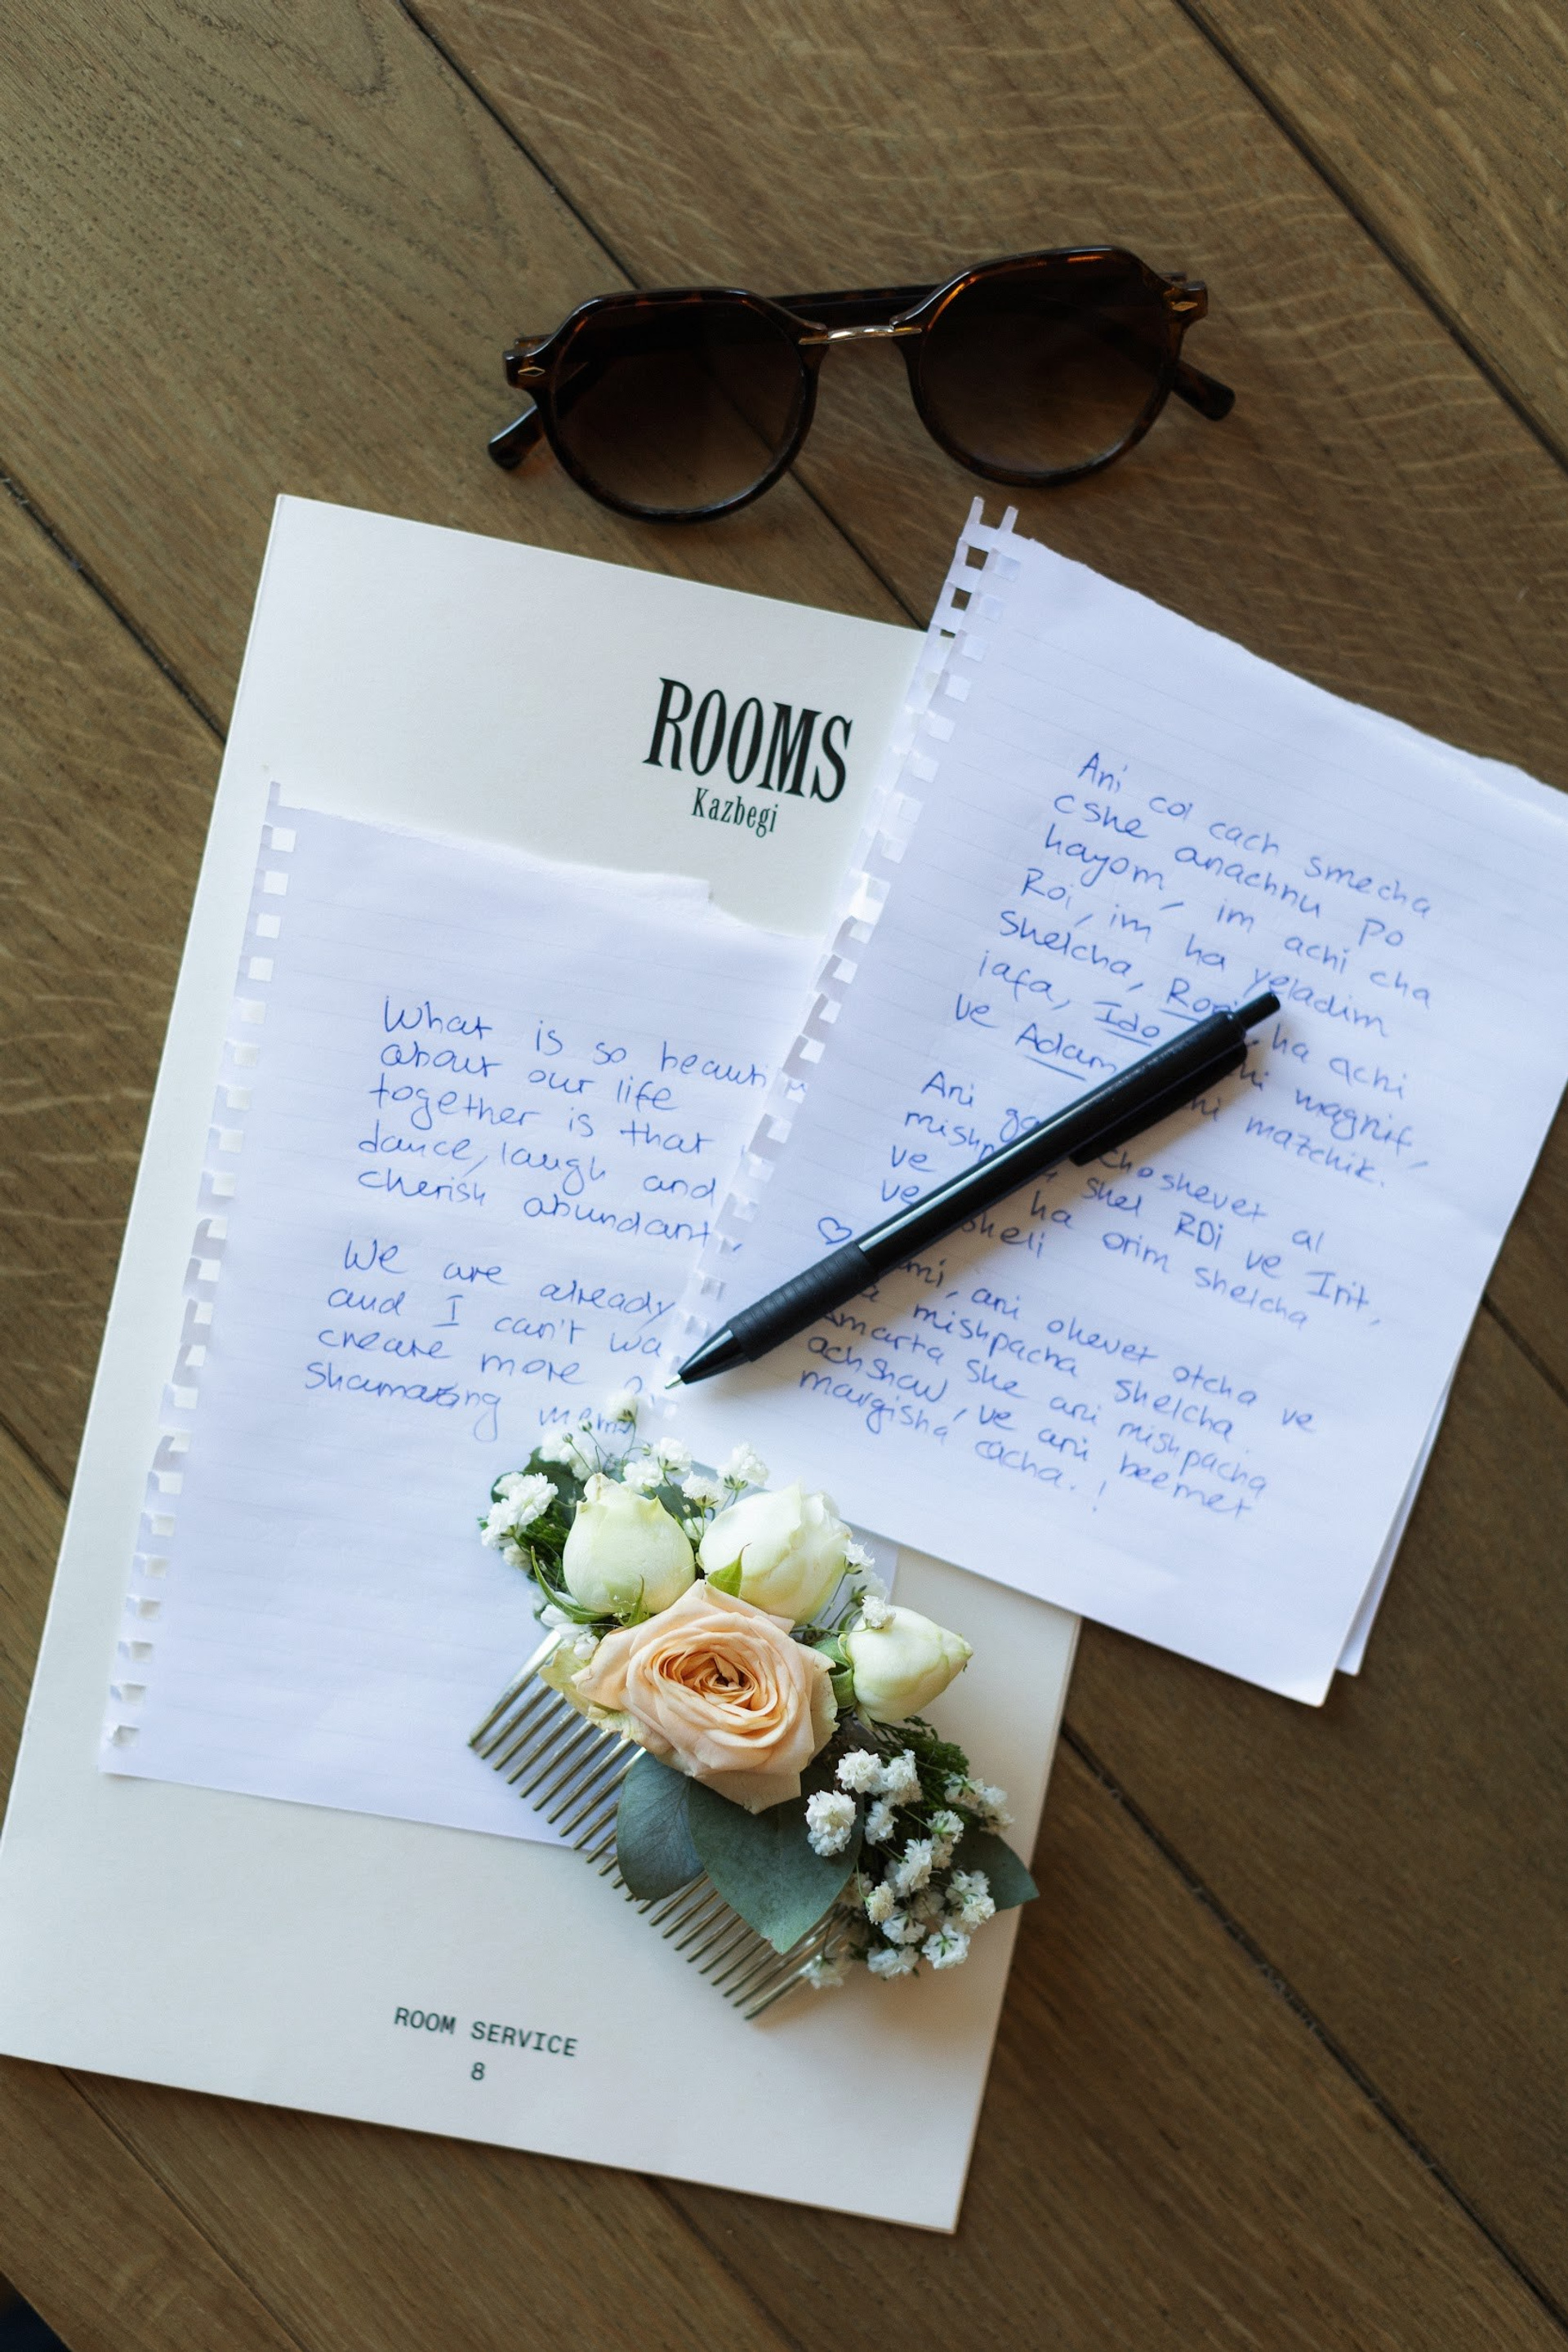 ROOMS
Kazbegi
What is so beauti
about our life
together is that
dance, laugh and
cherish abundant
We are already
and I can't wa
create more
mem
Ani col cach smecha
cshe anachnu po
hayom, im achi cha
Roi, im ha yeladim
Shelcha, ha achi
iafa, Ido magnif,
ve Adam mazchik.
Ani choshevet al
shel ROi ve Irit,
ve ha orim shelcha
ve sheli
ani ohevet otcha ve
mishpacha shelcha.
Amarta she ani mishpacha
achshav, ve ani beemet
margisha cacha.!
ROOM SERVICE
8